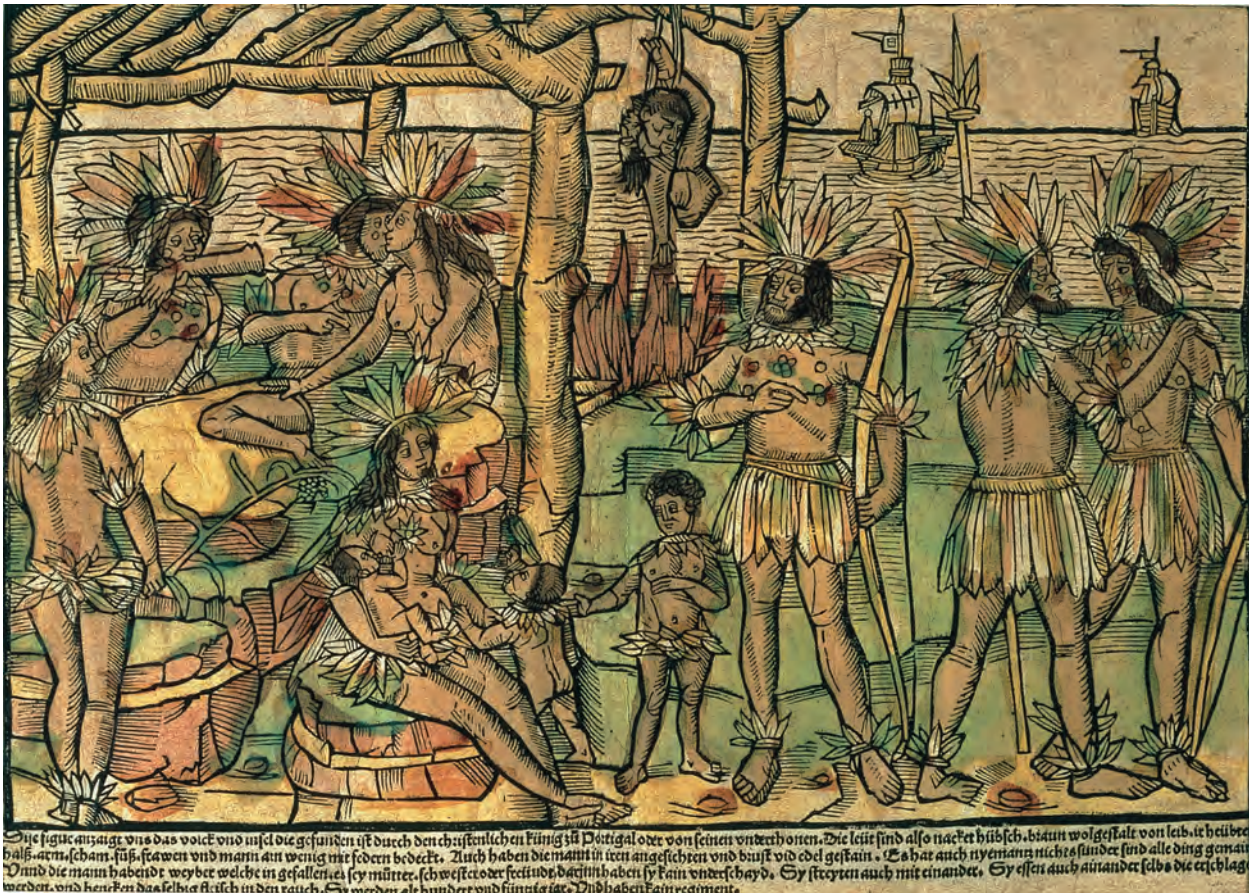 Dise figur anzaigt vns das volck vnd insel die gefunden ist durch den christenlichen künig zů Portigal oder von seinen vnderthonen. Die leüt sind also nacket hübsch. braun wolgestalt von leib. ir heübter
halß. arm. scham. füß. frawen vnd mann ain wenig mit federn bedeckt. Auch haben die mann in iren angesichten vnd brust vil edel gestain. Es hat auch nyemantz nichts sunder sind alle ding gemain
Vnnd die mann habendt weyber welche in gefallen. es sey můtter. schwester oder freündt. darjnn haben sy kain vnderschayd. Sy streyten auch mit einander. Sy essen auch ainander selbs die erschlagen
werden. vnd hencken das selbig fleisch in den rauch. Sy werden alt hundert vnd füntzig iar. Vnd haben kain regiment.